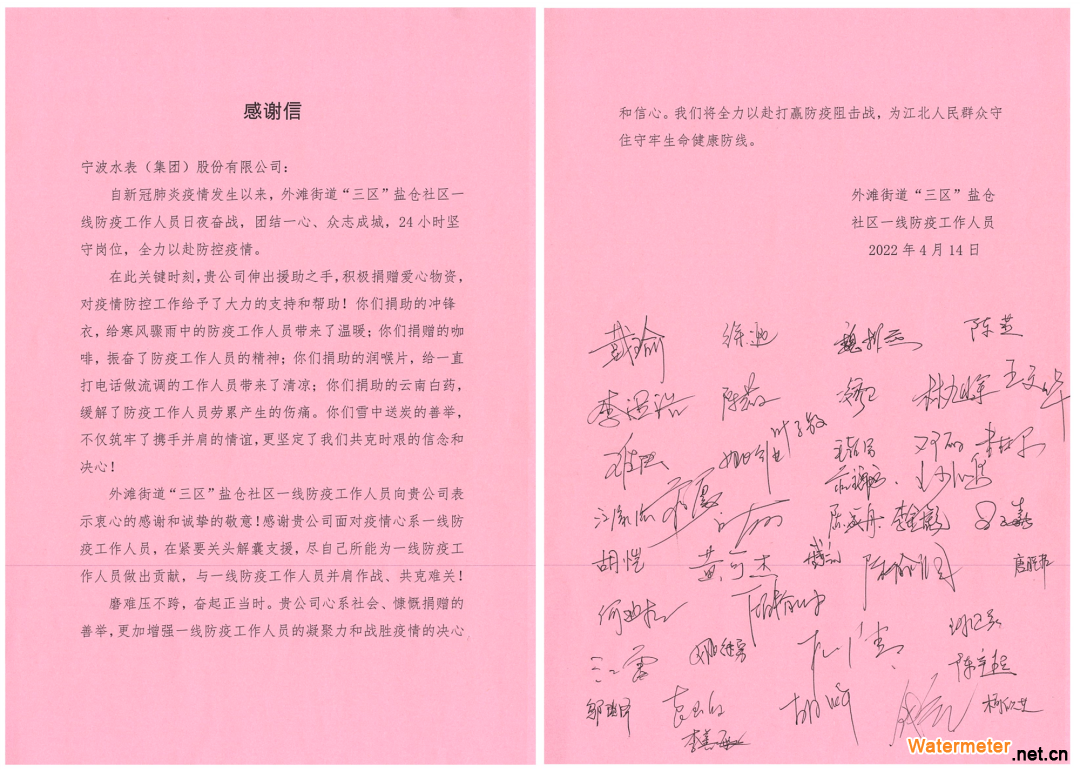 感谢信
宁波水表（集团）股份有限公司：
自新冠肺炎疫情发生以来，外滩街道“三区”盐仓社区一
线防疫工作人员日夜奋战，团结一心、众志成城，24小时坚
守岗位，全力以赴防控疫情。
在此关键时刻，贵公司伸出援助之手，积极捐赠爱心物资，
对疫情防控工作给予了大力的支持和帮助！你们捐助的冲锋
衣，给寒风骤雨中的防疫工作人员带来了温暖；你们捐赠的咖
啡，振奋了防疫工作人员的精神；你们捐助的润喉片，给一直
打电话做流调的工作人员带来了清凉；你们捐助的云南白药，
缓解了防疫工作人员劳累产生的伤痛。你们雪中送炭的善举，
不仅筑牢了携手并肩的情谊，更坚定了我们共克时艰的信念和
决心！
外滩街道“三区”盐仓社区一线防疫工作人员向贵公司表
示衷心的感谢和诚挚的敬意！感谢贵公司面对疫情心系一线防
疫工作人员，在紧要关头解囊支援，尽自己所能为一线防疫工
作人员做出贡献，与一线防疫工作人员并肩作战、共克难关！
磨难压不跨，奋起正当时。贵公司心系社会、慷慨捐赠的
善举，更加增强一线防疫工作人员的凝聚力和战胜疫情的决心
和信心。我们将全力以赴打赢防疫阻击战，为江北人民群众守
住守牢生命健康防线。
外滩街道“三区”盐仓
社区一线防疫工作人员
2022年4月14日
戴瑜
陈芝
胡恺
黄可杰
Watermeter.net.cn